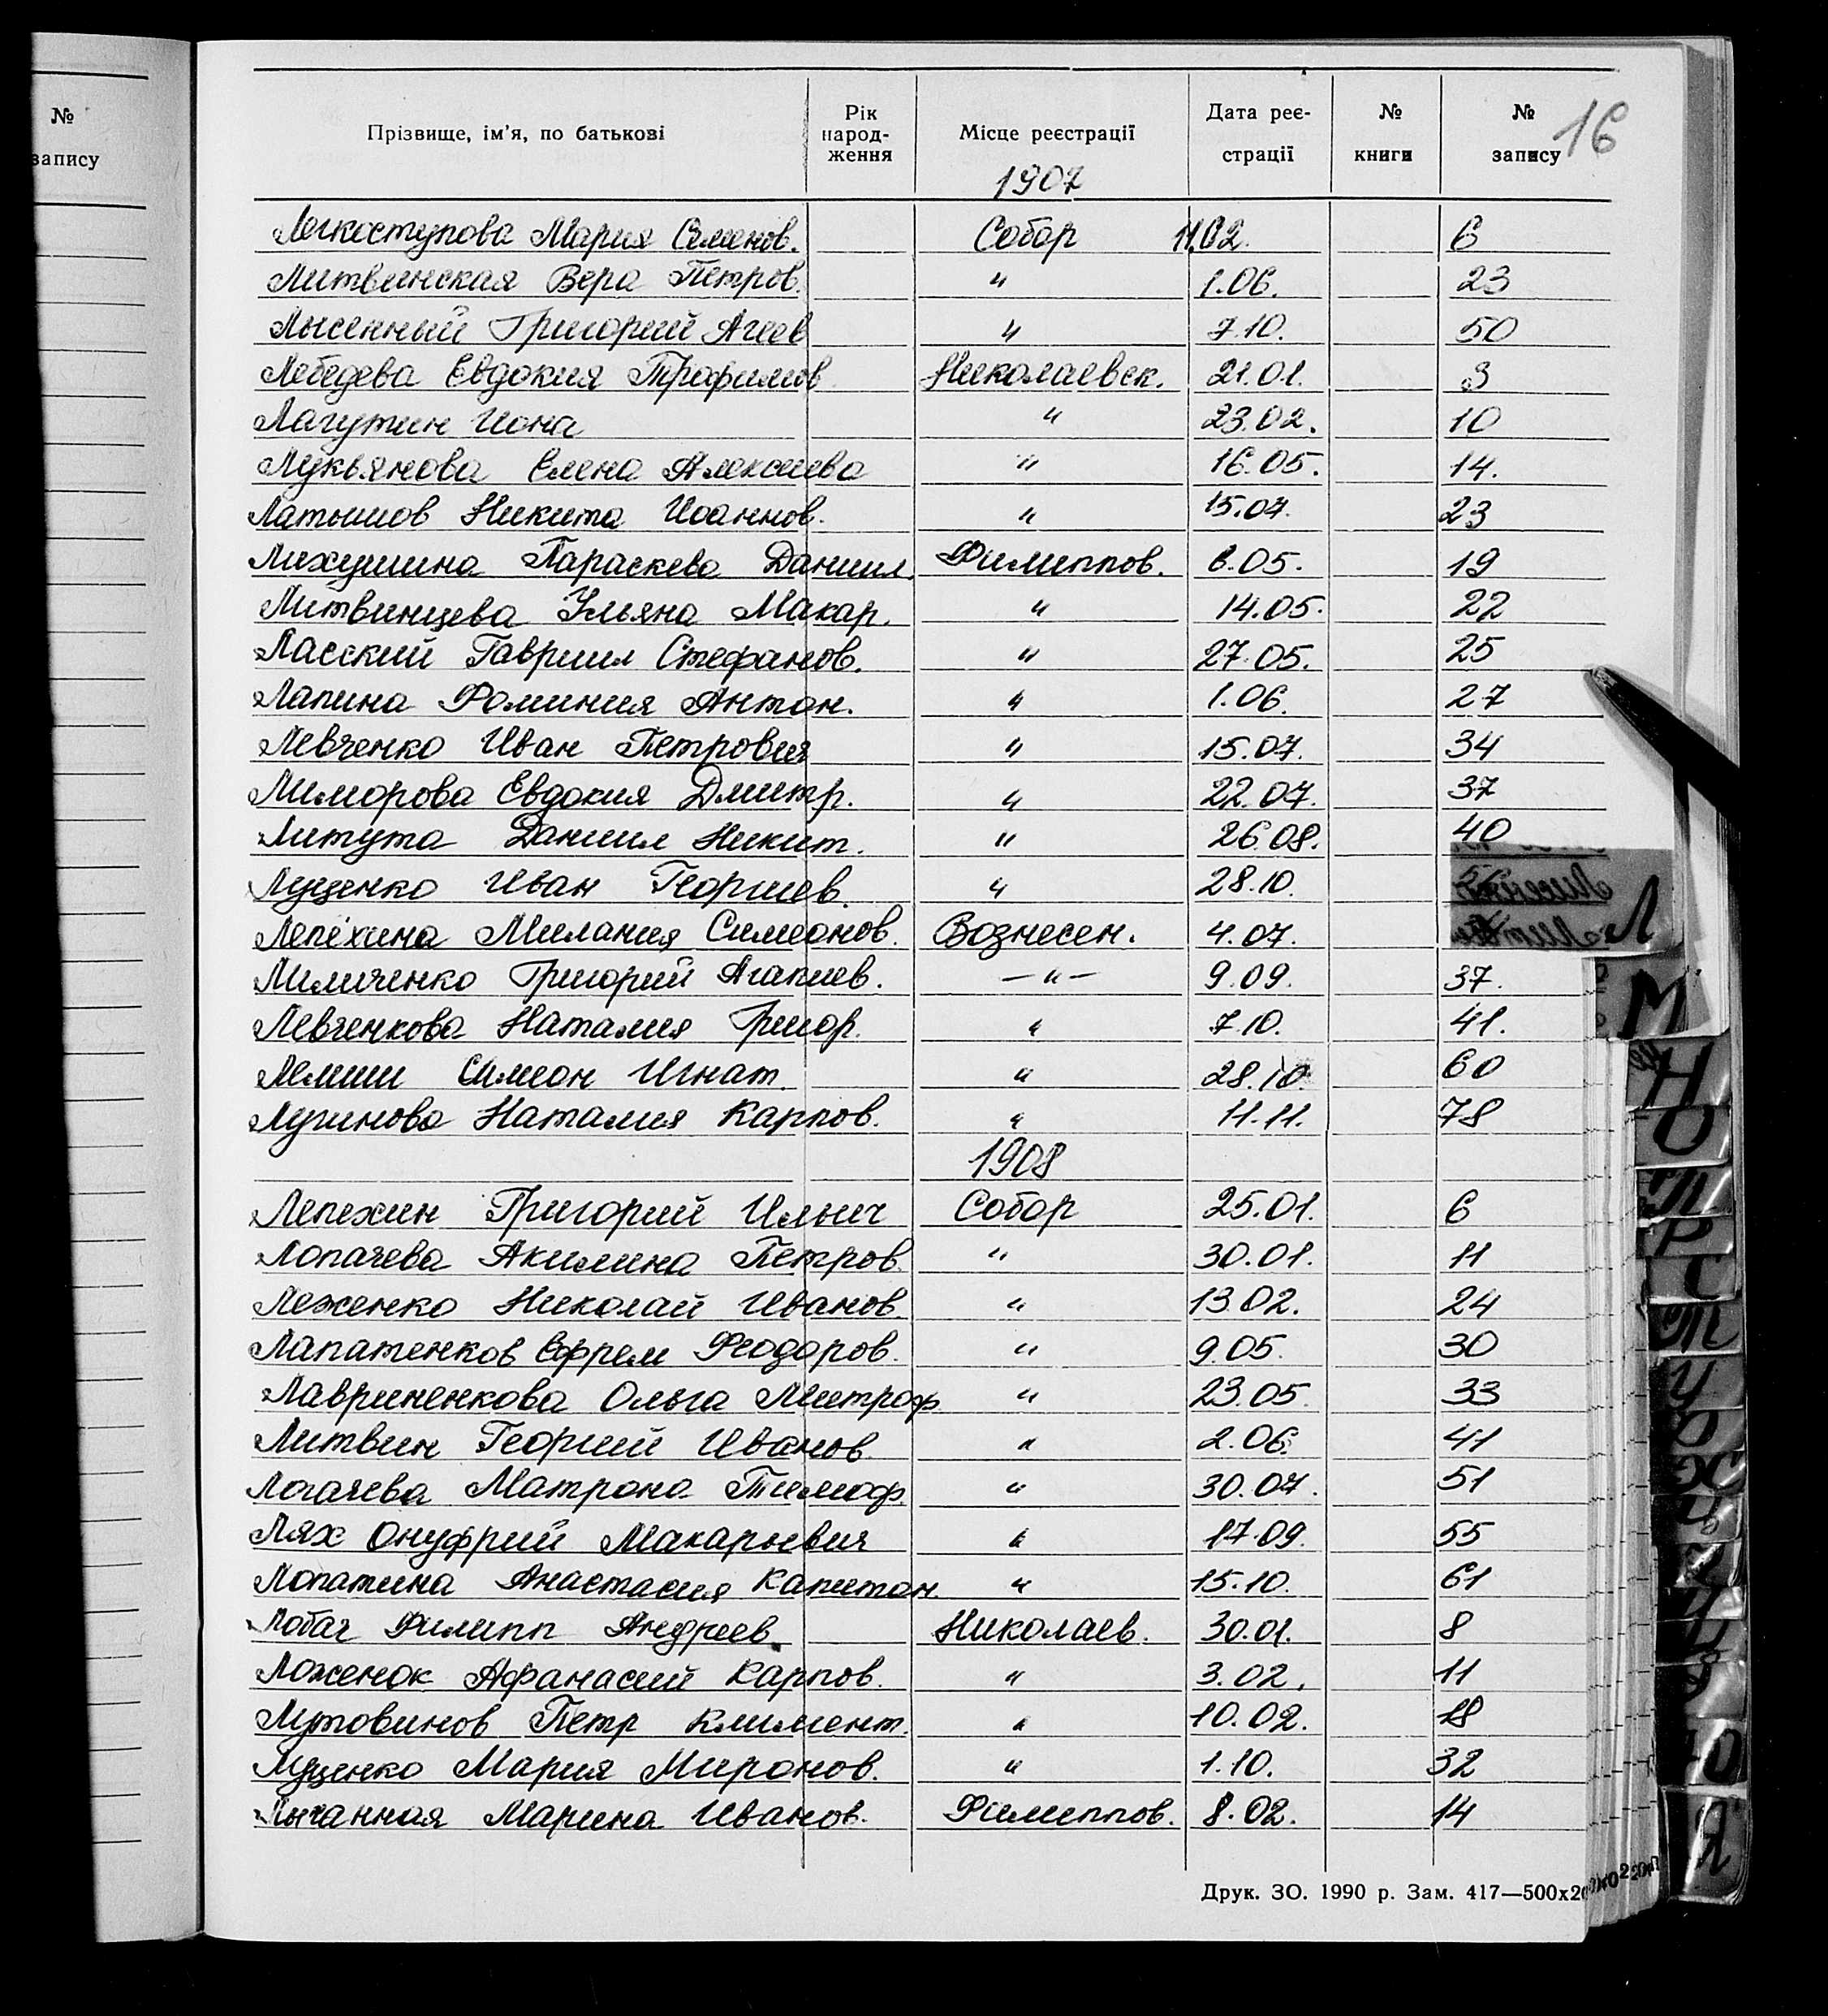 №
запису
16
Прізвище, ім'я, по батькові Рік народження Місце реєстрації Дата реєстрації № книги № запису
1907
Легкоступова Мария Семенов. Собор 11.02. 6
Литвинская Вера Петров. " 1.06. 23
Лысенный Григорий Агеев " 7.10. 50
Лебедева Евдокия Трофимов. Николаевск. 21.01. 3
Лагутин Иона " 23.02. 10
Лукьянова Елена Алексеева " 16.05. 14.
Латышов Никита Иоаннов. " 15.07. 23
Лихушина Параскева Даниил. Филиппов. 6.05. 19
Литвинцева Ульяна Макар. " 14.05. 22
Ласский Гавриил Стефанов. " 27.05. 25
Лапина Фоминия Антон. " 1.06. 27
Левченко Иван Петрович " 15.07. 34
Лиморова Евдокия Дмитр. " 22.07. 37
Литута Даниил Никит. " 26.08. 40
Луценко Иван Георгиев. " 28.10.
Лепёхина Милания Симеонов. Вознесен. 4.07.
Лимиченко Григорий Агапиев. – " – 9.09. 37.
Левченкова Наталия Григор. " 7.10. 41.
Лемиш Симеон Игнат. " 28.10 60
Лугинова Наталия Карпов. " 11.11. 78
1908
Лепехин Григорий Ильич Собор 25.01. 6
Лопачева Акилина Петров. " 30.01. 11
Леженко Николай Иванов. " 13.02. 24
Лапатенков Ефрем Феодоров. " 9.05. 30
Лавриненкова Ольга Митроф. " 23.05. 33
Литвин Георгий Иванов. " 2.06. 41
Логачева Матрона Тимоф. " 30.07. 51
Лях Онуфрий Макарьевич " 17.09. 55
Лопатина Анастасия Капитон. " 15.10. 61
Лобач Филипп Андреев. Николаев. 30.01. 8
Ложенок Афанасий Карпов. " 3.02. 11
Лутовинов Петр Климент. " 10.02. 18
Луценко Мария Миронов. " 1.10. 32
Лычанная Марина Иванов. Филиппов. 8.02. 14
Л
М
Н
О
П
Р
С
Т
У
Ю
Я
Друк. ЗО. 1990 р. Зам. 417—500х20